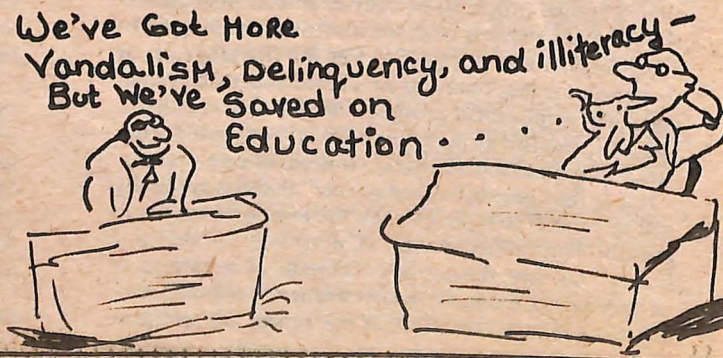 We've Got More
Vandalism, Delinquency, and illiteracy -
But We've Saved on
Education . . . .